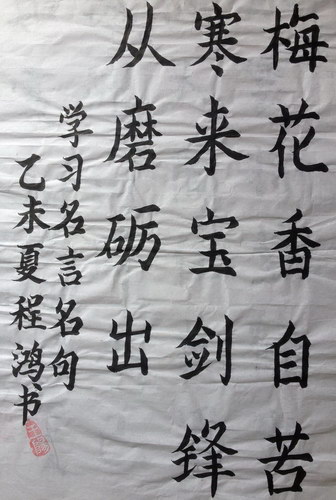 梅花香自苦
寒来宝剑锋
从磨砺出
学习名言名句
乙未夏程鸿书